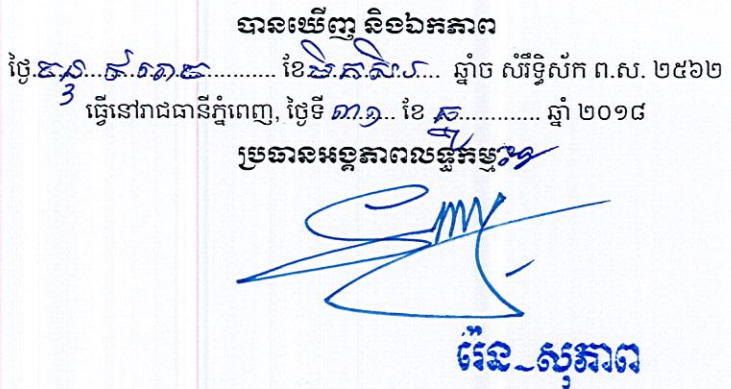 បានឃើញ និងឯកភាព
ថ្ងៃ.ចន្ទ...៩.រោច........... ខែ.មិគសិរ.... ឆ្នាំច សំរឹទ្ធិស័ក ព.ស. ២៥៦២
ធ្វើនៅរាជធានីភ្នំពេញ, ថ្ងៃទី ៣១... ខែ ធ្នូ............. ឆ្នាំ ២០១៨
ប្រធានអង្គភាពលទ្ធកម្ម
រ៉េន សុភាព